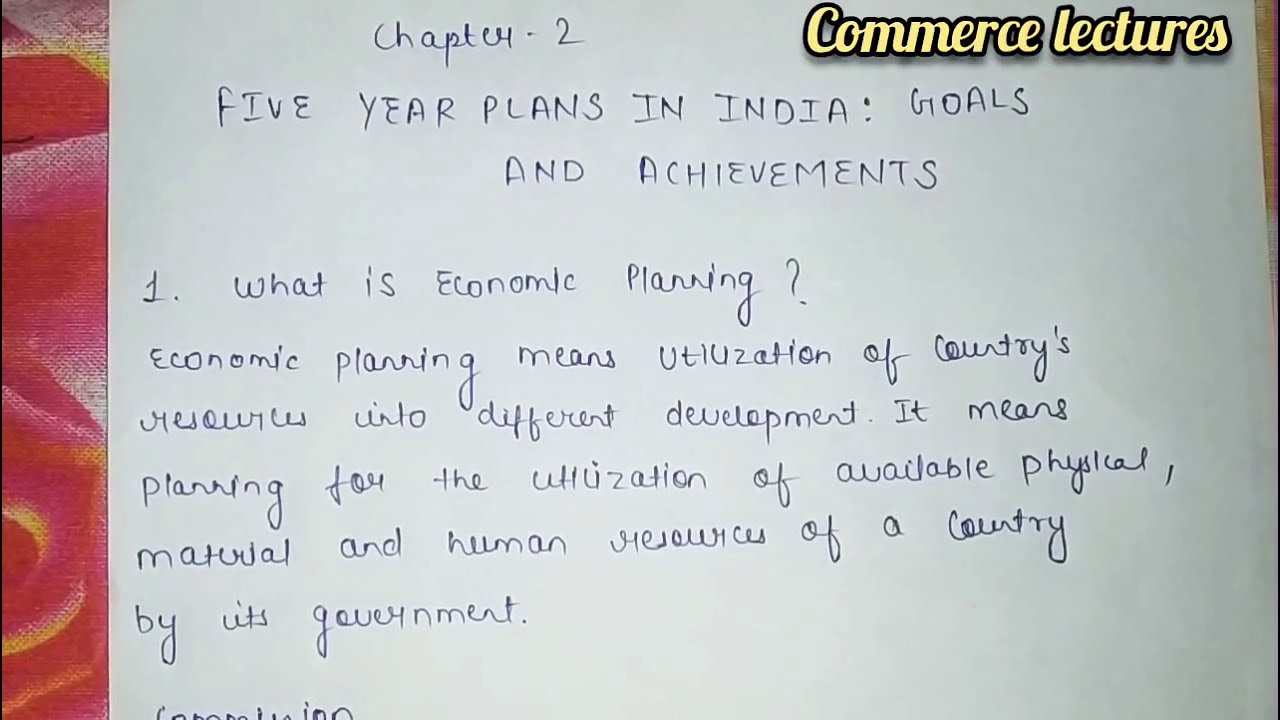 Commerce lectures
Chapter - 2
FIVE YEAR PLANS IN INDIA: GOALS
AND ACHIEVEMENTS
1. What is Economic Planning ?
Economic planning means utilization of country's
resources into different development. It means
planning for the utilization of available physical,
material and human resources of a country
by its government.